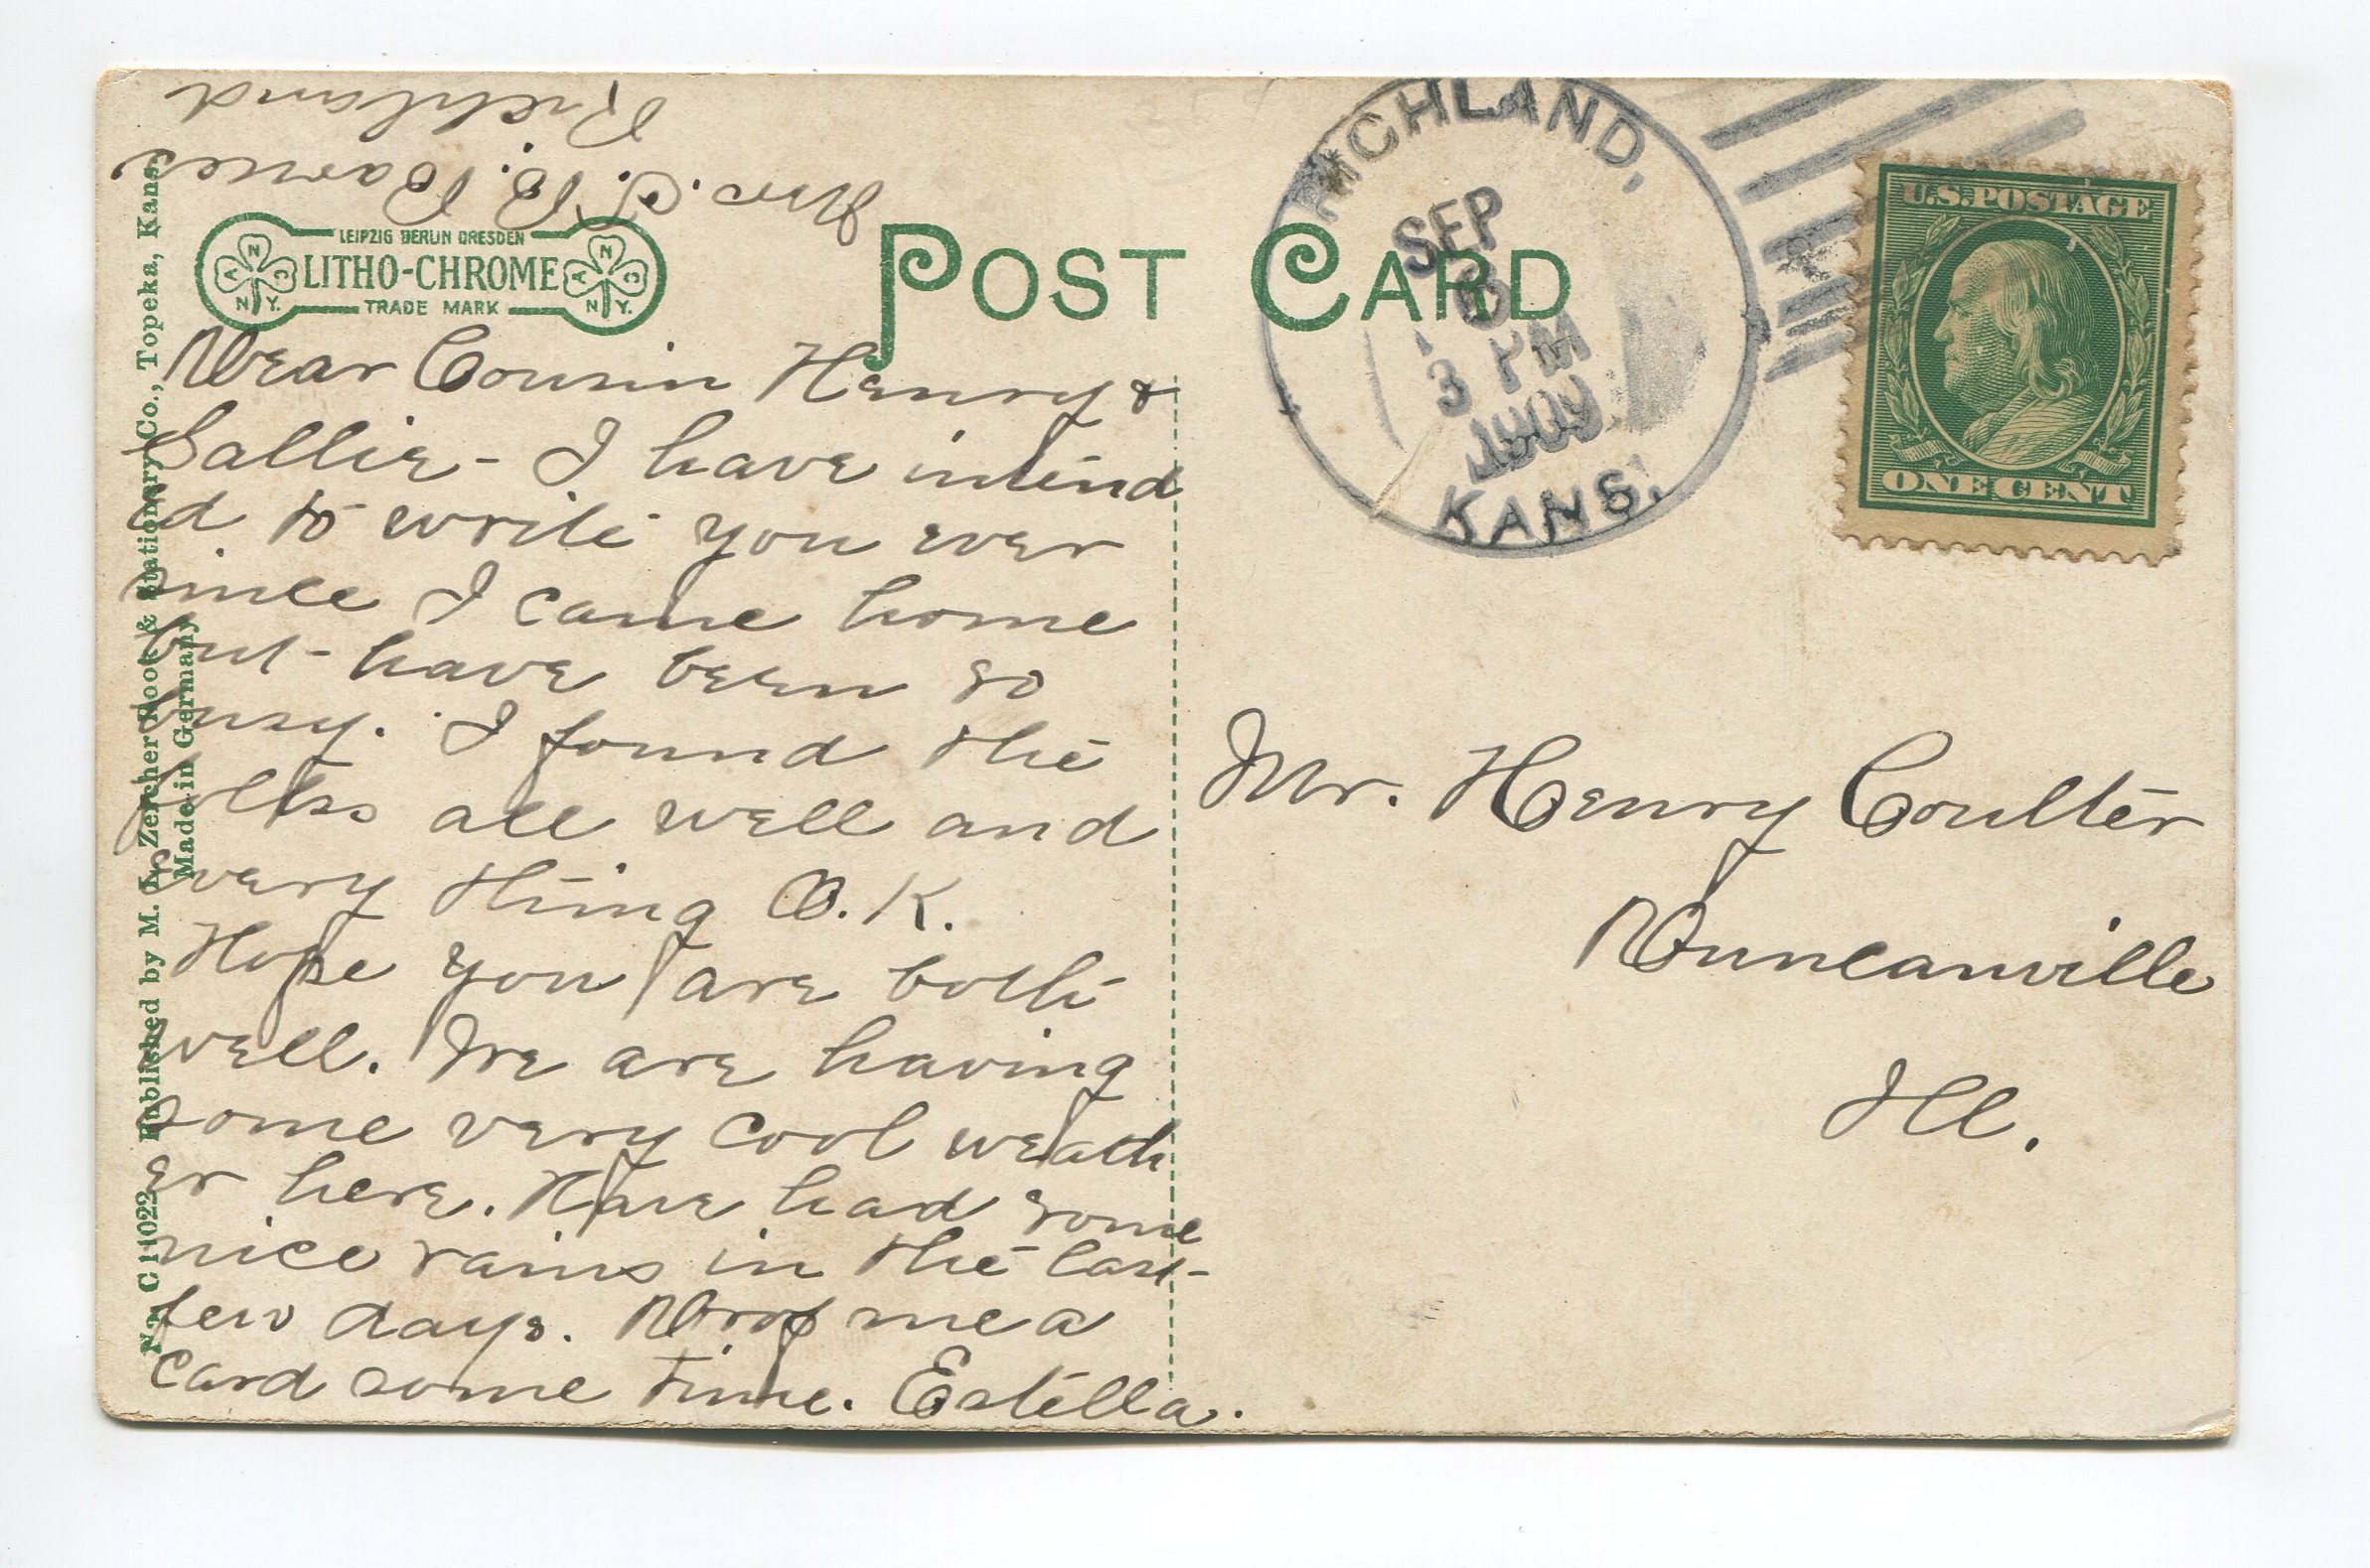 Mrs. C. B. Barnes
Richland
LEIPZIG BERLIN DRESDEN
LITHO-CHROME
TRADE MARK
A N C N.Y.
A N C N.Y.
POST CARD
RICHLAND,
SEP
3 PM
1909
KANS.
U.S. POSTAGE
ONE CENT
Dear Cousin Henry &
Sallie - I have intend
ed to write you ever
since I came home
but - have been so
busy. I found the
folks all well and
every thing O.K.
Hope you are both
well. We are having
some very cool weath
er here. Have had some
nice rains in the last
few days. Drop me a
card some time. Estella.
Mr. Henry Coulter
Duncanville
Ill.
No. C 11022 Published by M. L. Zercher Book & Stationery Co., Topeka, Kans.
Made in Germany